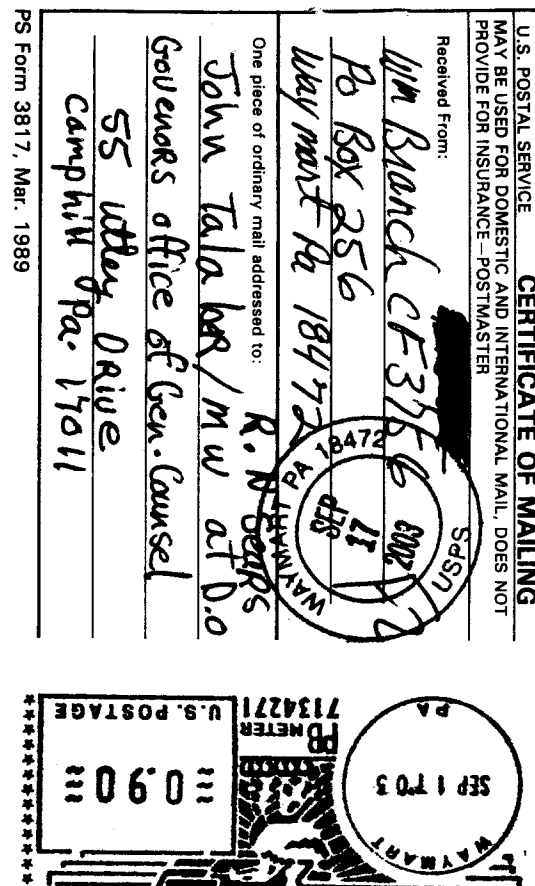 U.S. POSTAL SERVICE CERTIFICATE OF MAILING
MAY BE USED FOR DOMESTIC AND INTERNATIONAL MAIL, DOES NOT
PROVIDE FOR INSURANCE—POSTMASTER
Received From:
Wm Branch CF3756
Po Box 256
Waymart Pa 18472
One piece of ordinary mail addressed to:
R. N. Sears
John Talaber/mw at D.O
Govenors office of Gen. Counsel
55 utley Drive
Camphill Pa. 17011
PS Form 3817, Mar. 1989
WAYMART PA 18472
SEP
17
2003
USPS
WAYMART
SEP 17'03
PA
PB METER
7134271
U.S. POSTAGE
≈0.90≈